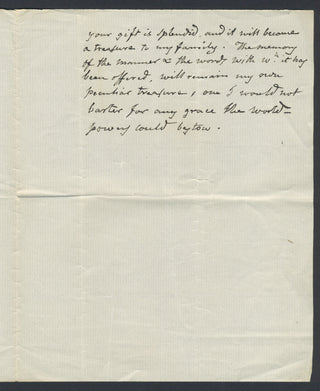 your gift is splendid, and it will become
a treasure to my family. The memory
of the manner & the words with wh. it has
been offered, will remain my own
peculiar treasure, one I would not
barter for any grace the world-
powers could bestow.